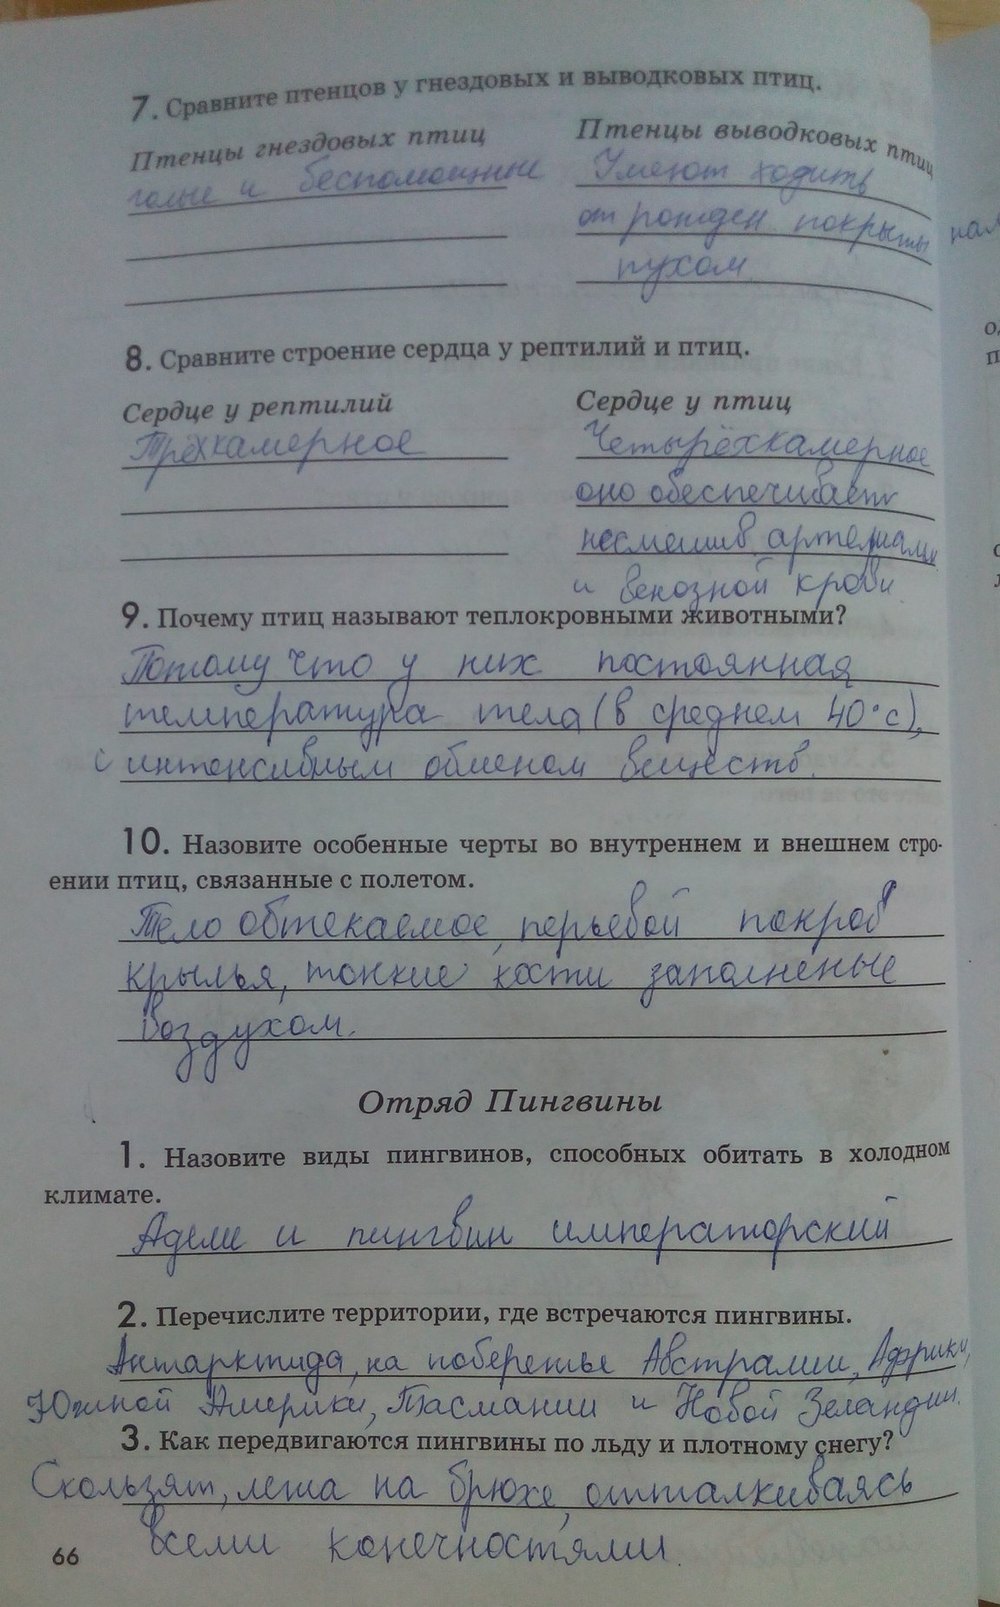 7. Сравните птенцов у гнездовых и выводковых птиц.
Птенцы гнездовых птиц
голые и беспомощные
Птенцы выводковых птиц
Умеют ходить
от рожден покрыты
пухом
8. Сравните строение сердца у рептилий и птиц.
Сердце у рептилий
Трёхкамерное
Сердце у птиц
Четырёхкамерное
оно обеспечивает
несмешив артериальн
и венозной крови
9. Почему птиц называют теплокровными животными?
Потому что у них постоянная
температура тела (в среднем 40°с),
с интенсивным обменом веществ.
10. Назовите особенные черты во внутреннем и внешнем стро-
ении птиц, связанные с полетом.
Тело обтекаемое, перьевой покров
крылья, тонкие кости заполненые
воздухом.
Отряд Пингвины
1. Назовите виды пингвинов, способных обитать в холодном
климате.
Адели и пингвин императорский
2. Перечислите территории, где встречаются пингвины.
Антарктида, на побережье Австралии, Африки,
Южной Америки, Тасмании и Новой Зеландии.
3. Как передвигаются пингвины по льду и плотному снегу?
Скользят, лежа на брюхе, отталкиваясь
всеми конечностями.
66